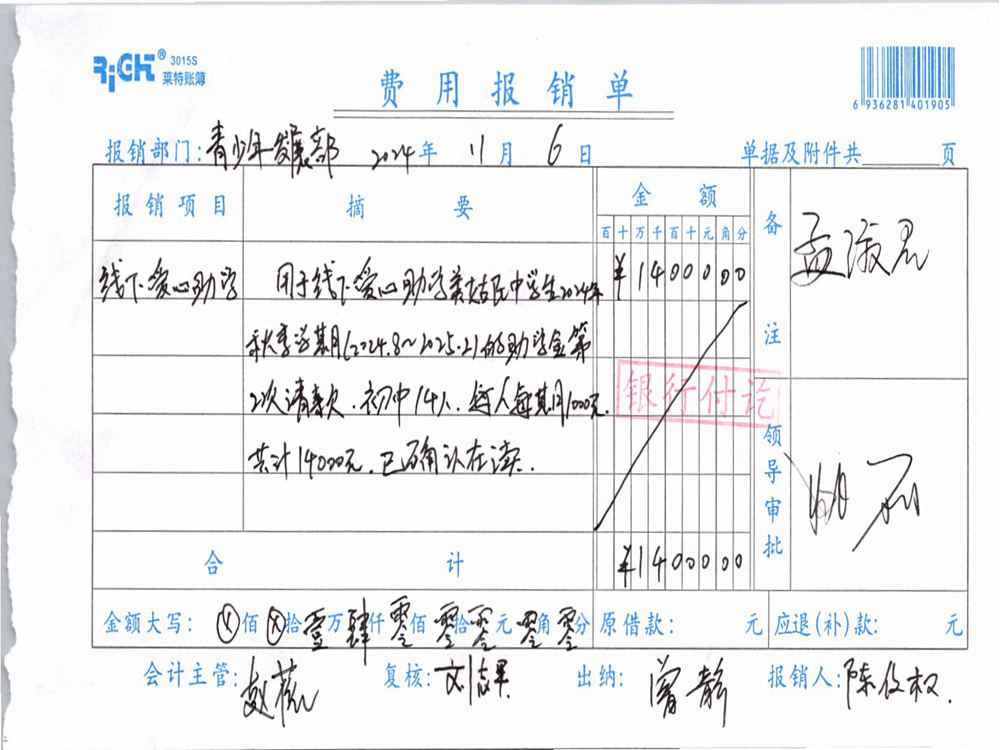 RiGHT® 3015S
莱特账簿
费用报销单
6 936281 401905
报销部门：青少年发展部 2024年 11月 6日 单据及附件共 页
报销项目 摘要 金额 备注
百十万千百十元角分
线下爱心助学 用于线下爱心助学美姑民中学生2024年 ¥1400000
秋季学期(2024.8~2025.2)的助学金第
2次请款,初中14人,每人每期1000元.
银行付讫
共计14000元,已确认在读.
领导审批
合计 ¥1400000
金额大写：ⓧ佰ⓧ拾壹万肆仟零佰零拾零元零角零分 原借款： 元 应退(补)款： 元
会计主管：赵薇 复核： 出纳：曾静 报销人：陈俊权.